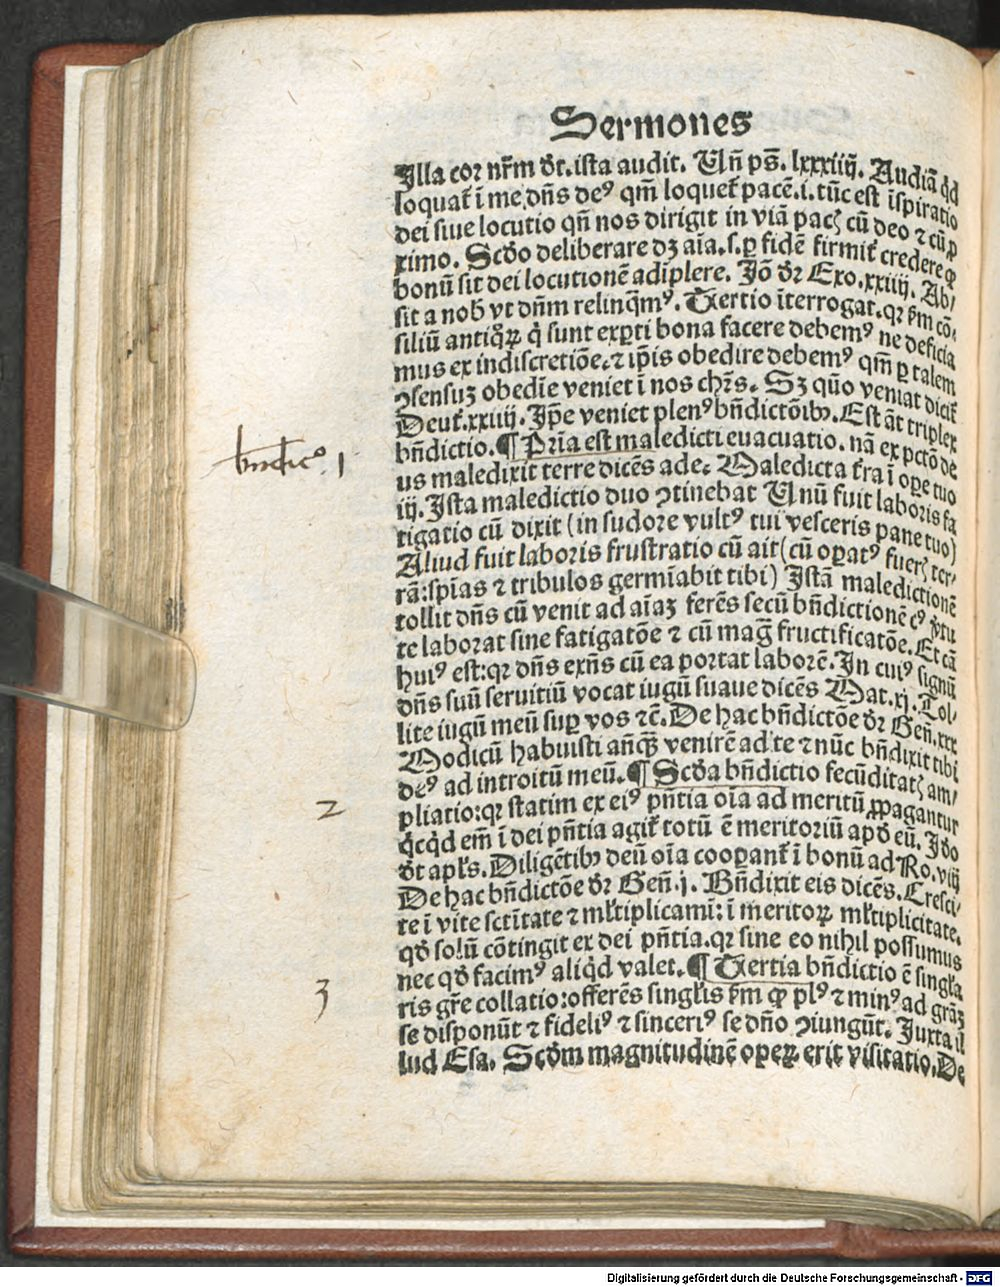 Sermones
Illa cor nr̄m d̄t. ista audit. Un̄ ps̄. lxxxiiij. Audiā qd̄
loquat᷑ ī me dn̄s deꝰ qm̄ loquet᷑ pacē.i. tūc est īspiratio
dei siue locutio qn̄ nos dirigit in viā pacꝭ cū deo ⁊ cū ꝓ
ximo. Scd̄o deliberare dꝫ aīa.s. ꝑ fidē firmit᷑ credere ꝙ
bonū sit dei locutionē adīplere. Iō d̄r Exo.xxiiij. Ab/
sit a nob̄ vt dn̄m relinq̄mꝰ. Tertio īterrogat. qꝛ ẜm cō/
siliū antiq̊ꝝ q̇ sunt exꝑti bona facere debemꝰ ne deficia
mus ex indiscretiōe. ⁊ ip̄is obedire debemꝰ qm̄ ꝑ talem
ꝯsensuꝫ obedīe veniet ī nos chr̄s. Sꝫ quō veniat dicit᷑
Deut᷑.xxiiij. Ip̄e veniet plenꝰ bn̄dictōibꝰ. Est āt triplex
bn̄dictio. ¶ Pria est maledicti euacuatio. nā ex pctō de
us maledixit terre dicēs ade. Maledicta t᷑ra ī oꝑe tuo
iij. Ista maledictio duo ꝯtinebat Unū fuit laboris fa
tigatio cū dixit (in sudore vultꝰ tui vesceris pane tuo)
Aliud fuit laboris frustratio cū ait (cū oꝑatꝰ fuerꝭ ter/
rā: spīas ⁊ tribulos germīabit tibi) Istā maledictionē
tollit dn̄s cū venit ad aīaꝫ ferēs secū bn̄dictionē cꝰ v̇tu
te laborat sine fatigatōe ⁊ cū mag̅ fructificatōe. Et cā
huiꝰ est: qꝛ dn̄s exn̄s cū ea portat laborē. In cuiꝰ signū
dn̄s suū seruitiū vocat iugū suaue dicēs Mat.xj. Tol/
lite iugū meū suꝑ vos ⁊c̄. De hac bn̄dictōe d̄r Gen̄.xxx
Modicū habuisti an̄qꝫ venirē ad te ⁊ nūc bn̄dixit tibi
deꝰ ad introitū meū. ¶ Scd̄a bn̄dictio fecūditatꝭ am/
pliatio: qꝛ statim ex eiꝰ pn̄tia oīa ad meritū ꝓpagantur
q̇cqd̄ em̄ ī dei pn̄tia agit᷑ totū ē meritoriū apd̄ eū. Id̄o
d̄t apl̄s. Diligētibꝰ deū oīa cooꝑant᷑ ī bonū ad Ro.viij
De hac bn̄dictōe d̄r Gen̄.j. Bn̄dixit eis dicēs. Cresci/
te ī vite sctītate ⁊ ml̄tiplicamī: ī meritoꝝ ml̄tiplicitate.
qd̄ solū cōtingit ex dei pn̄tia. qꝛ sine eo nihil possumus
nec qd̄ facimꝰ aliqd̄ valet. ¶ Tertia bn̄dictio ē singl̄a
ris gr̄e collatio: offerēs singl̄is ẜm ꝙ plꝰ ⁊ minꝰ ad grāꝫ
se disponūt ⁊ fideliꝰ ⁊ sinceriꝰ se dn̄o ꝯiungūt. Iuxta il
lud Esa. Scd̄m magnitudinē oꝑeꝝ erit visitatio. De
1
2
3
Digitalisierung gefördert durch die Deutsche Forschungsgemeinschaft - DFG